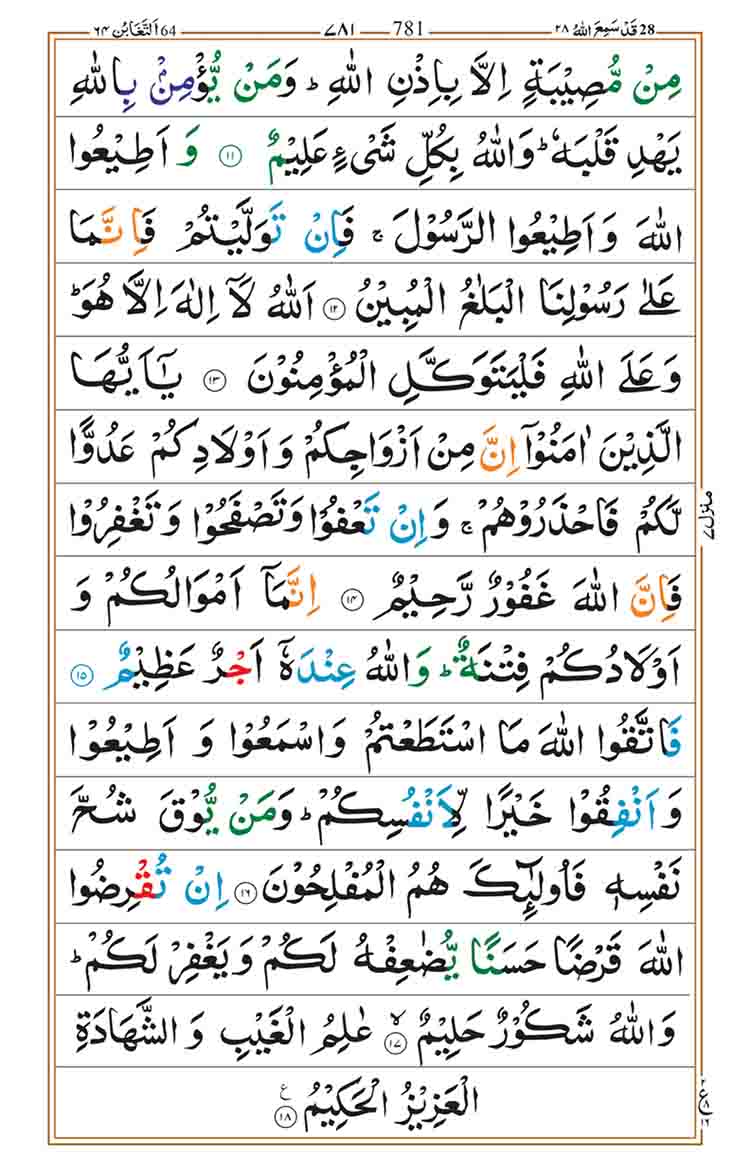 28 قَدْ سَمِعَ اللّٰهُ ٢٨ 781 ٧٨١ 64 اَلتَّغَابُن ٦٤
مِنْ مُّصِيْبَةٍ اِلَّا بِاِذْنِ اللّٰهِ ؕ وَمَنْ يُّؤْمِنْۢ بِاللّٰهِ
يَهْدِ قَلْبَهٗ ؕ وَاللّٰهُ بِكُلِّ شَىْءٍ عَلِيْمٌ ۝۱۱ وَ اَطِيْعُوا
اللّٰهَ وَ اَطِيْعُوا الرَّسُوْلَ ۚ فَاِنْ تَوَلَّيْتُمْ فَاِنَّمَا
عَلٰى رَسُوْلِنَا الْبَلٰغُ الْمُبِيْنُ ۝۱۲ اَللّٰهُ لَاۤ اِلٰهَ اِلَّا هُوَ ؕ
وَ عَلَى اللّٰهِ فَلْيَتَوَكَّلِ الْمُؤْمِنُوْنَ ۝۱۳ يٰۤاَيُّهَا
الَّذِيْنَ اٰمَنُوْۤا اِنَّ مِنْ اَزْوَاجِكُمْ وَ اَوْلَادِكُمْ عَدُوًّا
لَّكُمْ فَاحْذَرُوْهُمْ ۚ وَ اِنْ تَعْفُوْا وَتَصْفَحُوْا وَ تَغْفِرُوْا
فَاِنَّ اللّٰهَ غَفُوْرٌ رَّحِيْمٌ ۝۱۴ اِنَّمَاۤ اَمْوَالُكُمْ وَ
اَوْلَادُكُمْ فِتْنَةٌ ؕ وَاللّٰهُ عِنْدَهٗۤ اَجْرٌ عَظِيْمٌ ۝۱۵
فَاتَّقُوا اللّٰهَ مَا اسْتَطَعْتُمْ وَاسْمَعُوْا وَ اَطِيْعُوْا
وَ اَنْفِقُوْا خَيْرًا لِّاَنْفُسِكُمْ ؕ وَمَنْ يُّوْقَ شُحَّ
نَفْسِهٖ فَاُولٰٓئِكَ هُمُ الْمُفْلِحُوْنَ ۝۱۶ اِنْ تُقْرِضُوا
اللّٰهَ قَرْضًا حَسَنًا يُّضٰعِفْهُ لَكُمْ وَ يَغْفِرْ لَكُمْ ؕ
وَاللّٰهُ شَكُوْرٌ حَلِيْمٌ ۙ۝۱۷ عٰلِمُ الْغَيْبِ وَ الشَّهَادَةِ
الْعَزِيْزُ الْحَكِيْمُ ۝۱۸ ع
منزل ٧
٢ ع ٨ ١٦